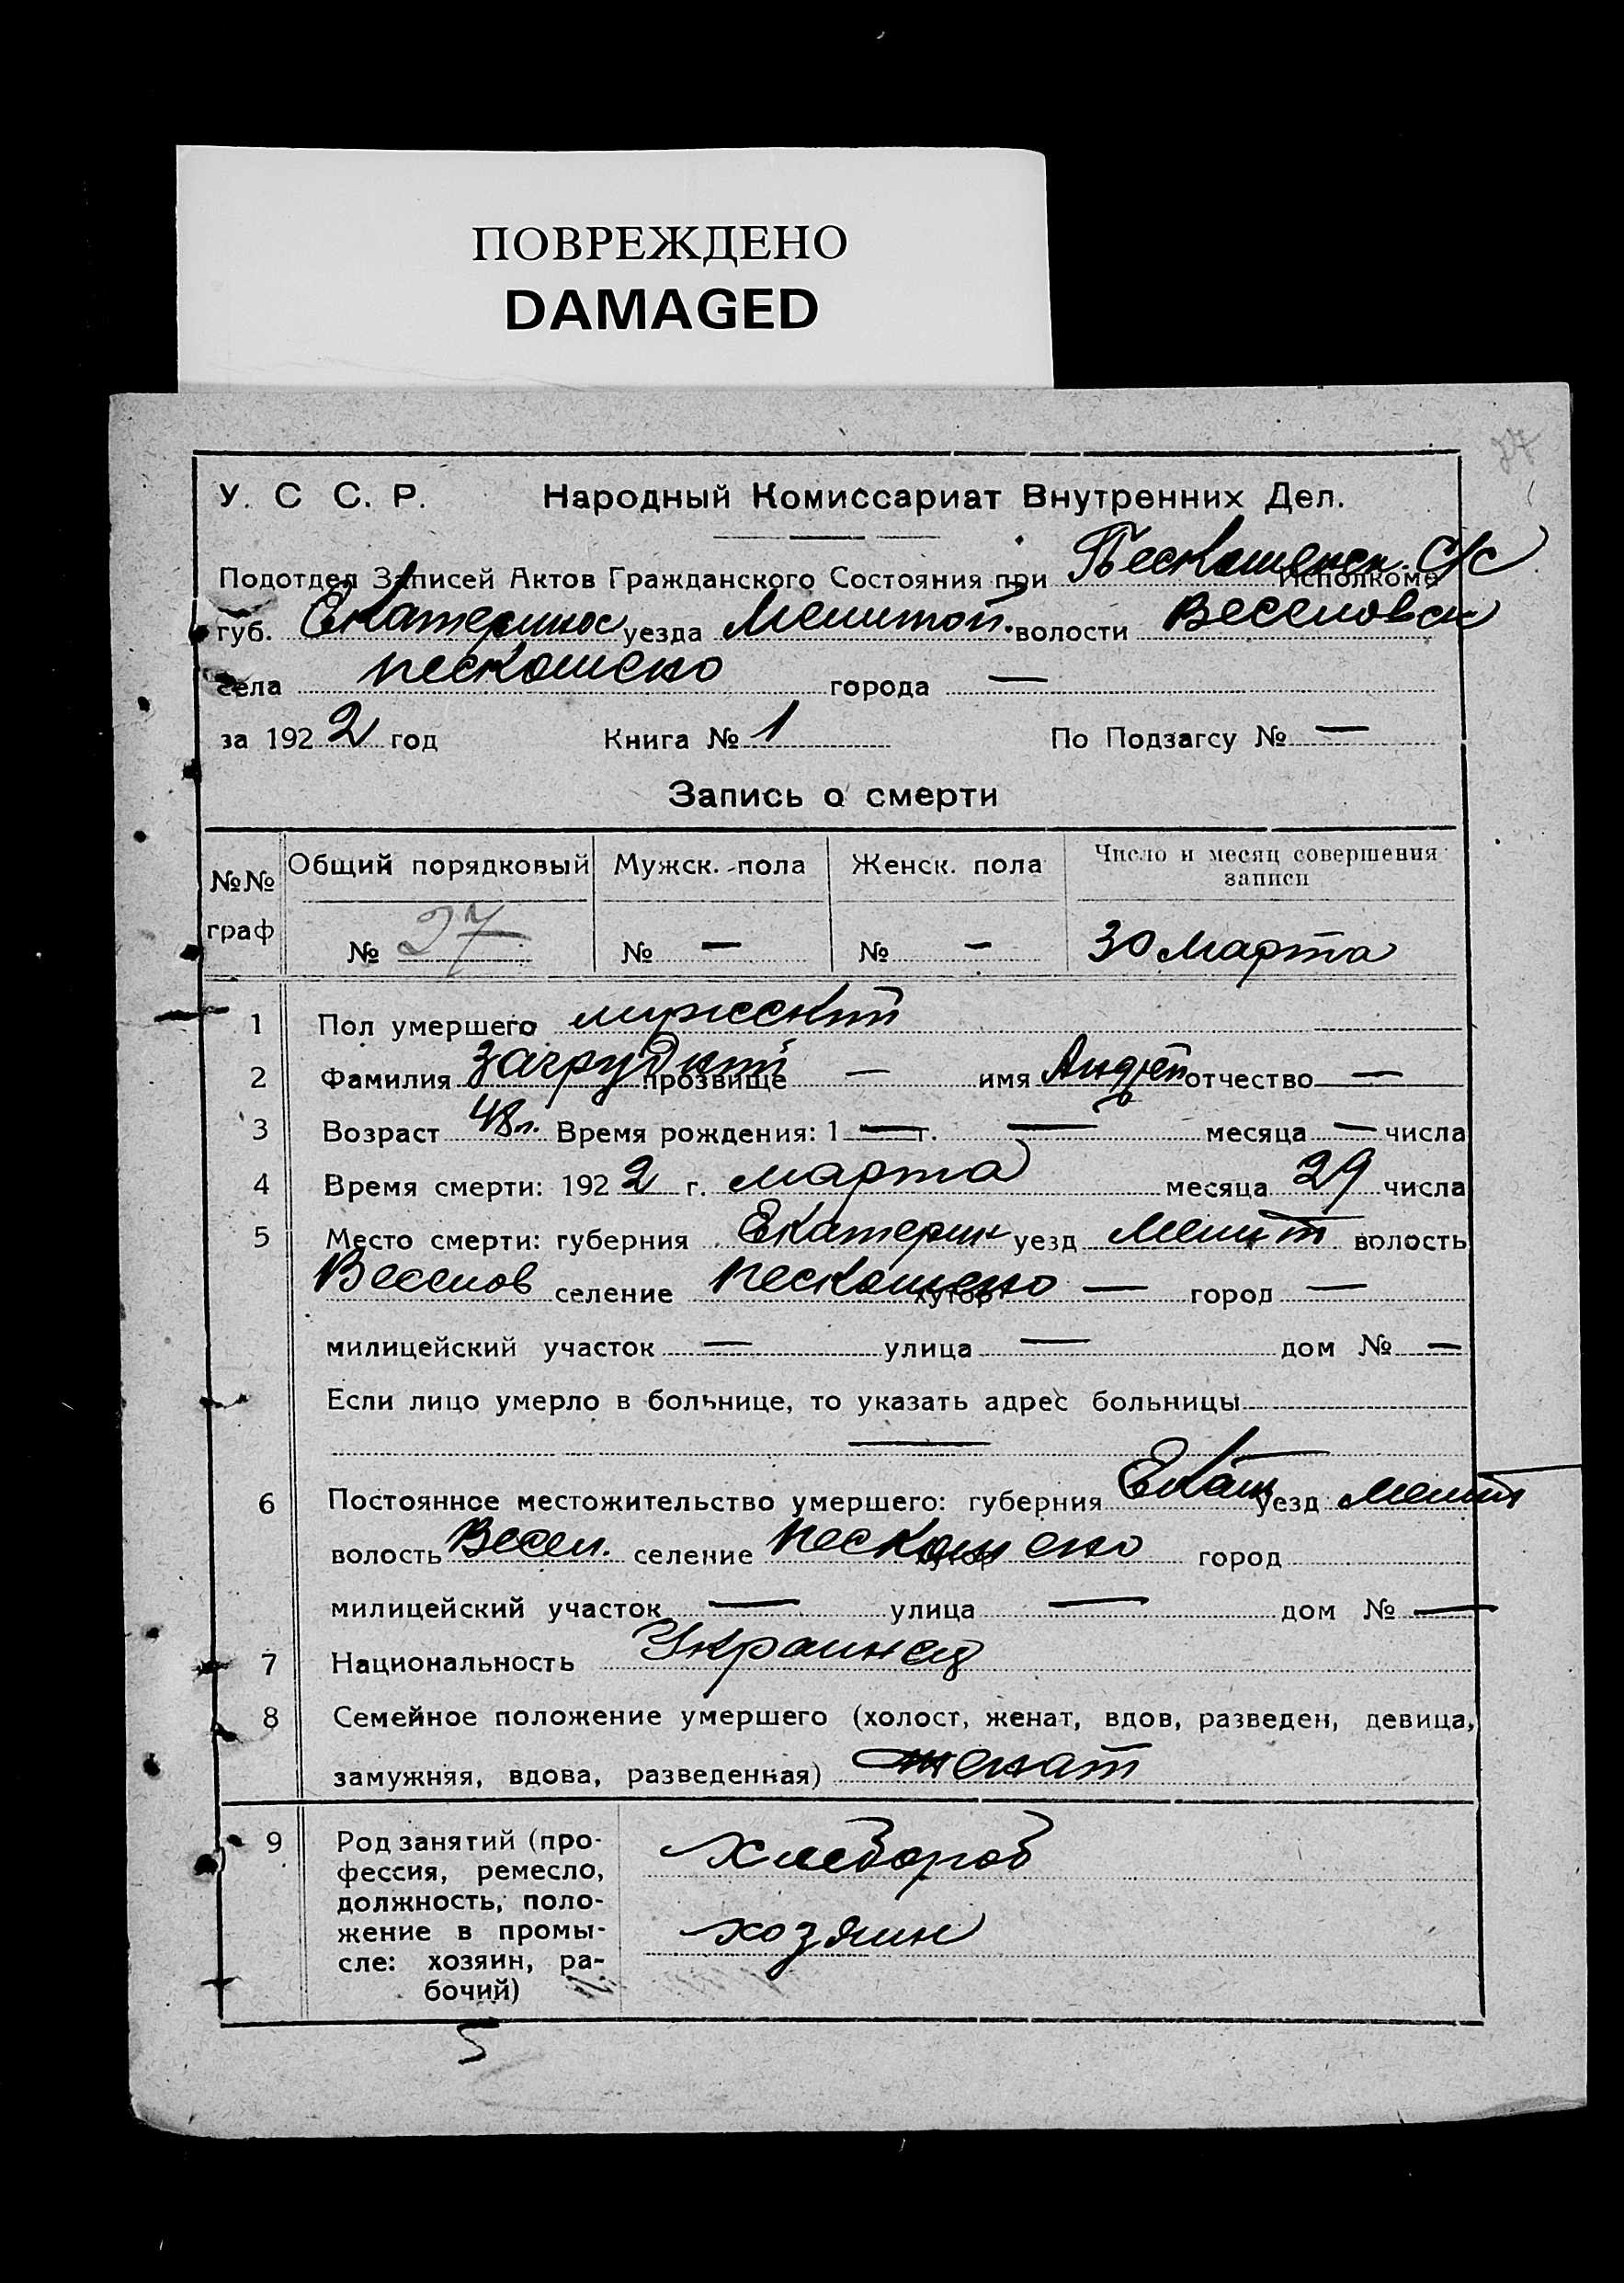 ПОВРЕЖДЕНО
DAMAGED
27
У. С С. Р. Народный Комиссариат Внутренних Дел.
Подотдел Записей Актов Гражданского Состояния при Пескошенск. С/с Исполкоме
губ. Екатеринос уезда Мелитой. волости Веселовск
села Пескошено города —
за 1922 год Книга № 1 По Подзагсу № —
Запись о смерти
№№ граф Общий порядковый Мужск. пола Женск. пола Число и месяц совершения записи
№ 27 № — № — 30 марта
1 Пол умершего мужский
2 Фамилия Загрудний прозвище — имя Андрей отчество —
3 Возраст 48 л. Время рождения: 1 — г. — месяца — числа
4 Время смерти: 1922 г. марта месяца 29 числа
5 Место смерти: губерния Екатерин уезд Мелит волость
Веселов селение Пескошено хутор — город —
милицейский участок — улица — дом № —
Если лицо умерло в больнице, то указать адрес больницы
—
6 Постоянное местожительство умершего: губерния Екат уезд Мелит
волость Весел. селение Пескошено хутор город
милицейский участок — улица — дом № —
7 Национальность Украинец
8 Семейное положение умершего (холост, женат, вдов, разведен, девица,
замужняя, вдова, разведенная) женат
9 Род занятий (про-
фессия, ремесло, хлебороб
должность, поло-
жение в промы- хозяин
сле: хозяин, ра-
бочий)